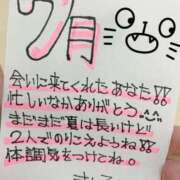 7月
会いに来てくれたあなた!!
忙しいなかありがとう
まだまだ夏は長いけど
2人でのりこえようね!!
体調気をつけてね。